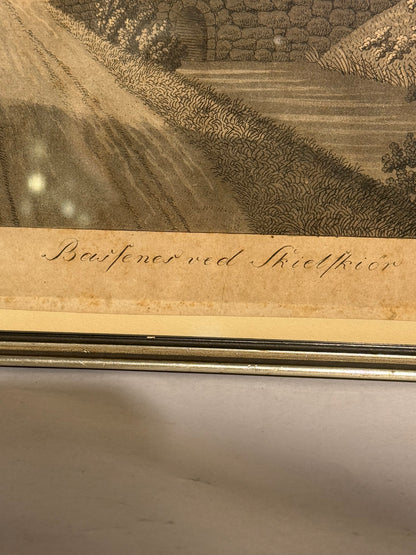 Baisſenes ved Skielſkiör